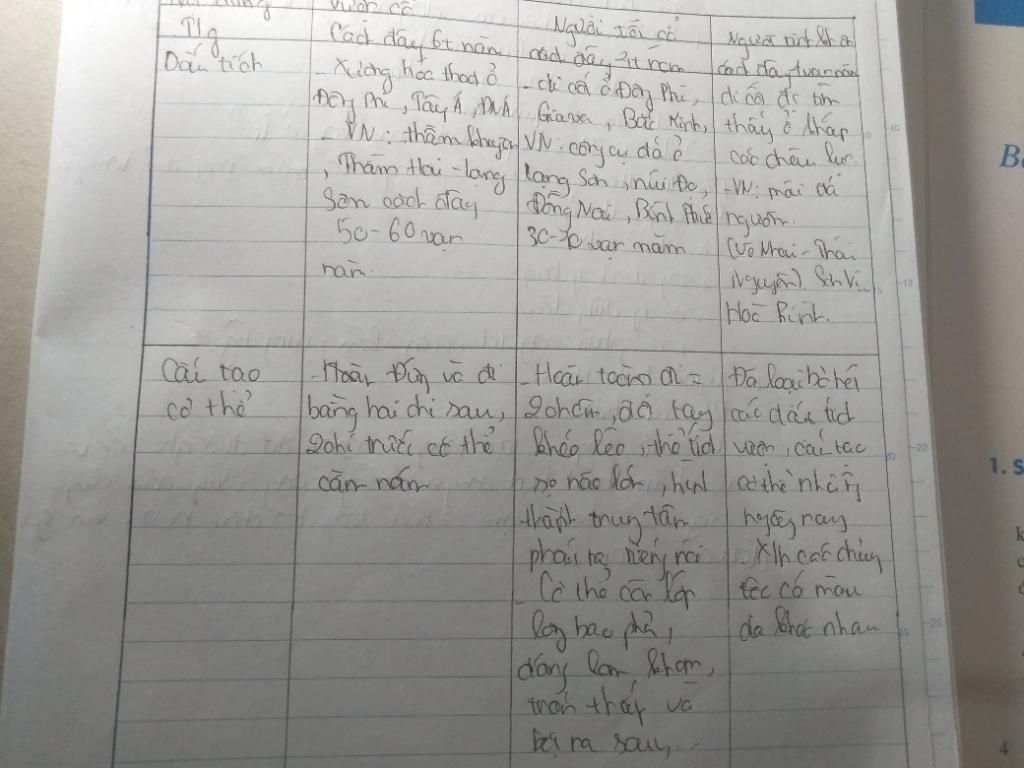 Nội dung
Vượn cổ
Người tối cổ
Người tinh khôn
Tlg
Cách đây 6t năm
cách đây 4t năm
cách đây 4 vạn năm
Dấu tích
- Xương hóa thạch ở
Đông Phi, Tây Á, ĐNÁ
- VN: thẩm khuyên
, Thẩm Hai - lạng
Sơn cách đây
50-60 vạn
năm.
- di cốt ở Đông Phi,
Giava, Bắc Kinh,
VN: công cụ đá ở
lạng Sơn, núi Đọ,
Đồng Nai, Bình Phước
30-40 vạn năm
di cốt đc tìm
thấy ở khắp
các châu lục.
- VN: mái đá
ngườm.
(Võ Nhai - Thái
Nguyên) Sơn Vi
Hoà Bình.
Cấu tạo
cơ thể
- Hoàn Đứng và đi
bằng hai chi sau,
2 chi trước có thể
cầm nắm
- Hoàn toàn đi =
2 chân, đôi tay
khéo léo, thể tích
sọ não lớn, hình
thành trung tâm
phát ra tiếng nói
- Cơ thể còn lớp
lông bao phủ,
dáng lom khom,
trán thấp và
bợt ra sau,
Đã loại bỏ hết
các dấu tích
vượn, cấu tạo
cơ thể như
ngày nay
Xh các chủng
tộc có màu
da khác nhau
10
15
20
25
B
1. S
k
c
4